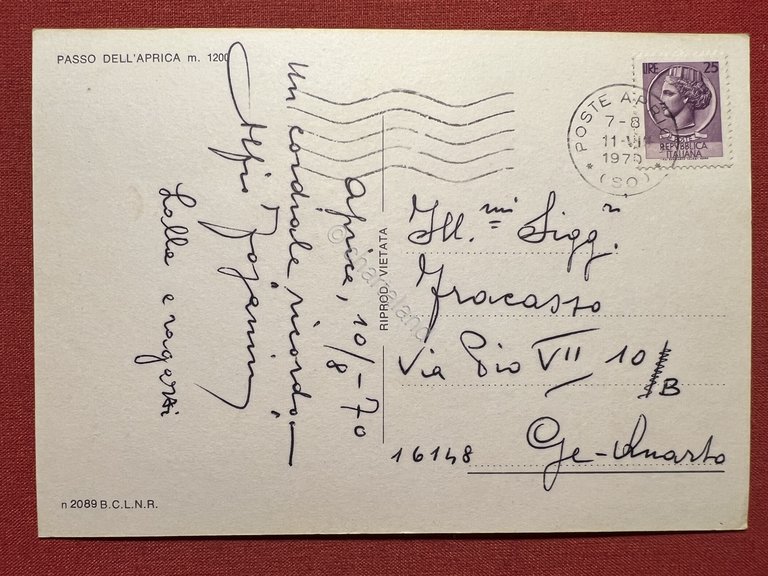 PASSO DELL'APRICA m. 1200
LIRE 25
POSTE ITALIANE
REPVBBLICA
ITALIANA
POSTE APRICA
7-8
11-VIII
1970
(SO)
Aprica, 10/8-70
Un cordiale ricordo
Alfio
Lalla e ragazzi
RIPROD. VIETATA
Ill.mi Sigg.ri
Fracasso
Via Pio VII 10/B
16148 Ge-Quarto
n 2089 B.C.L.N.R.
© charaland